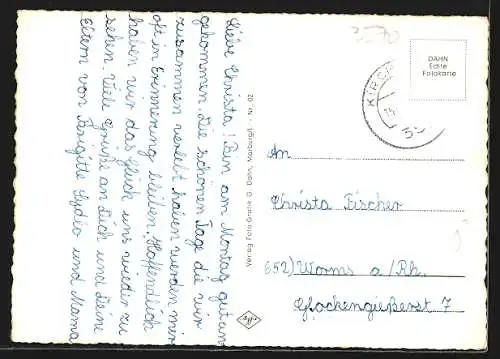 Liebe Christa! Bin am Montag gut an-
gekommen. Die schönen Tage die wir
zusammen verlebt haben werden mir
oft in Erinnerung bleiben. Hoffentlich
haben wir das Glück uns wieder zu
sehen. Viele Grüße an Dich und Deine
Eltern von Brigitte Lydia und Mama
Verlag Foto-Grafik G. Dahn, Marburg/L. · Nr. 02
3570
DAHN
Echte
Fotokarte
An
Christa Fischer
652) Worms a/Rh.
Glockengießerst 7